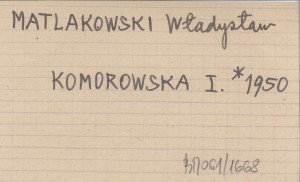 MATLAKOWSKI Władysław
KOMOROWSKA I. *1950
061/1668